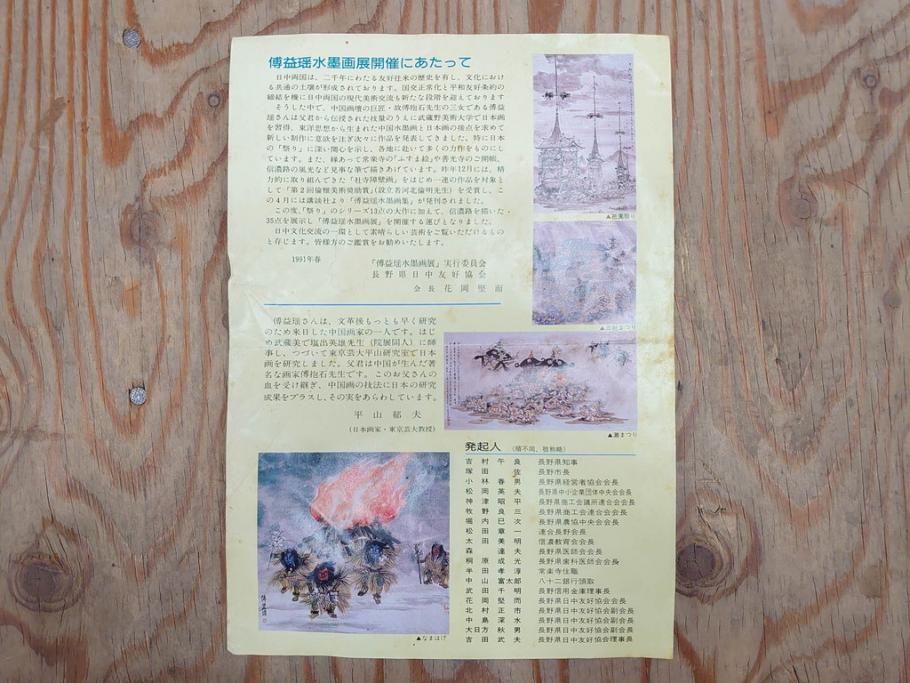 傅益瑶水墨画展開催にあたって
日中両国は、二千年にわたる友好往来の歴史を有し、文化におけ
る共通の土壌が形成されております。国交正常化と平和友好条約の
締結を機に日中両国の現代美術交流も新たな段階を迎えております
そうした中で、中国画壇の巨匠・故傅抱石先生の三女である傅益
瑶さんは父君から伝授された技量のうえに武蔵野美術大学で日本画
を習得、東洋思想から生まれた中国水墨画と日本画の接点を求めて
新しい制作に意欲を注ぎ次々に作品を発表してきました。特に日本
の「祭り」に深い関心を示し、各地に赴いて多くの力作をものにし
ています。また、縁あって常楽寺の「ふすま絵」や善光寺のご開帳、
信濃路の風光など見事な筆で描きあげています。昨年12月には、精
力的に取り組んできた「社寺障壁画」をはじめ一連の作品を対象と
して「第2回倫雅美術奨励賞」(設立者河北倫明先生)を受賞し、こ
の4月には講談社より「傅益瑶水墨画集」が発刊されました。
この度、「祭り」のシリーズ13点の大作に加えて、信濃路を描いた
35点を展示し「傅益瑶水墨画展」を開催する運びとなりました。
日中文化交流の一環として素晴らしい芸術をご覧いただけるもの
と存じます。皆様方のご鑑賞をお勧めいたします。
1991年春
「傅益瑶水墨画展」実行委員会
長野県日中友好協会
会長 花岡堅而
▲祇園祭り
▲三社まつり
傅益瑶さんは、文革後もっとも早く研究
のため来日した中国画家の一人です。はじ
め武蔵美で塩出英雄先生(院展同人)に師
事し、つづいて東京芸大平山研究室で日本
画を研究しました。父君は中国が生んだ著
名な画家傅抱石先生です。このお父さんの
血を受け継ぎ、中国画の技法に日本の研究
成果をプラスし、その実をあらわしています。
平山郁夫
(日本画家・東京芸大教授)
▲裏まつり
▲なまはげ
発起人 (順不同、敬称略)
吉村午良 長野県知事
塚田佐 長野市長
小林春男 長野県経営者協会会長
松岡英夫 長野県中小企業団体中央会会長
神津昭平 長野県商工会議所連合会会長
牧野良三 長野県商工会連合会会長
堀内巳次 長野県農協中央会会長
松田章一 連合長野会長
太田美明 信濃教育会会長
森達夫 長野県医師会会長
桐原成光 長野県歯科医師会会長
半田孝淳 常楽寺住職
中山富太郎 八十二銀行頭取
武田千明 長野信用金庫理事長
花岡堅而 長野県日中友好協会会長
北村正市 長野県日中友好協会副会長
中島深水 長野県日中友好協会副会長
大日方秋男 長野県日中友好協会副会長
吉田武夫 長野県日中友好協会理事長